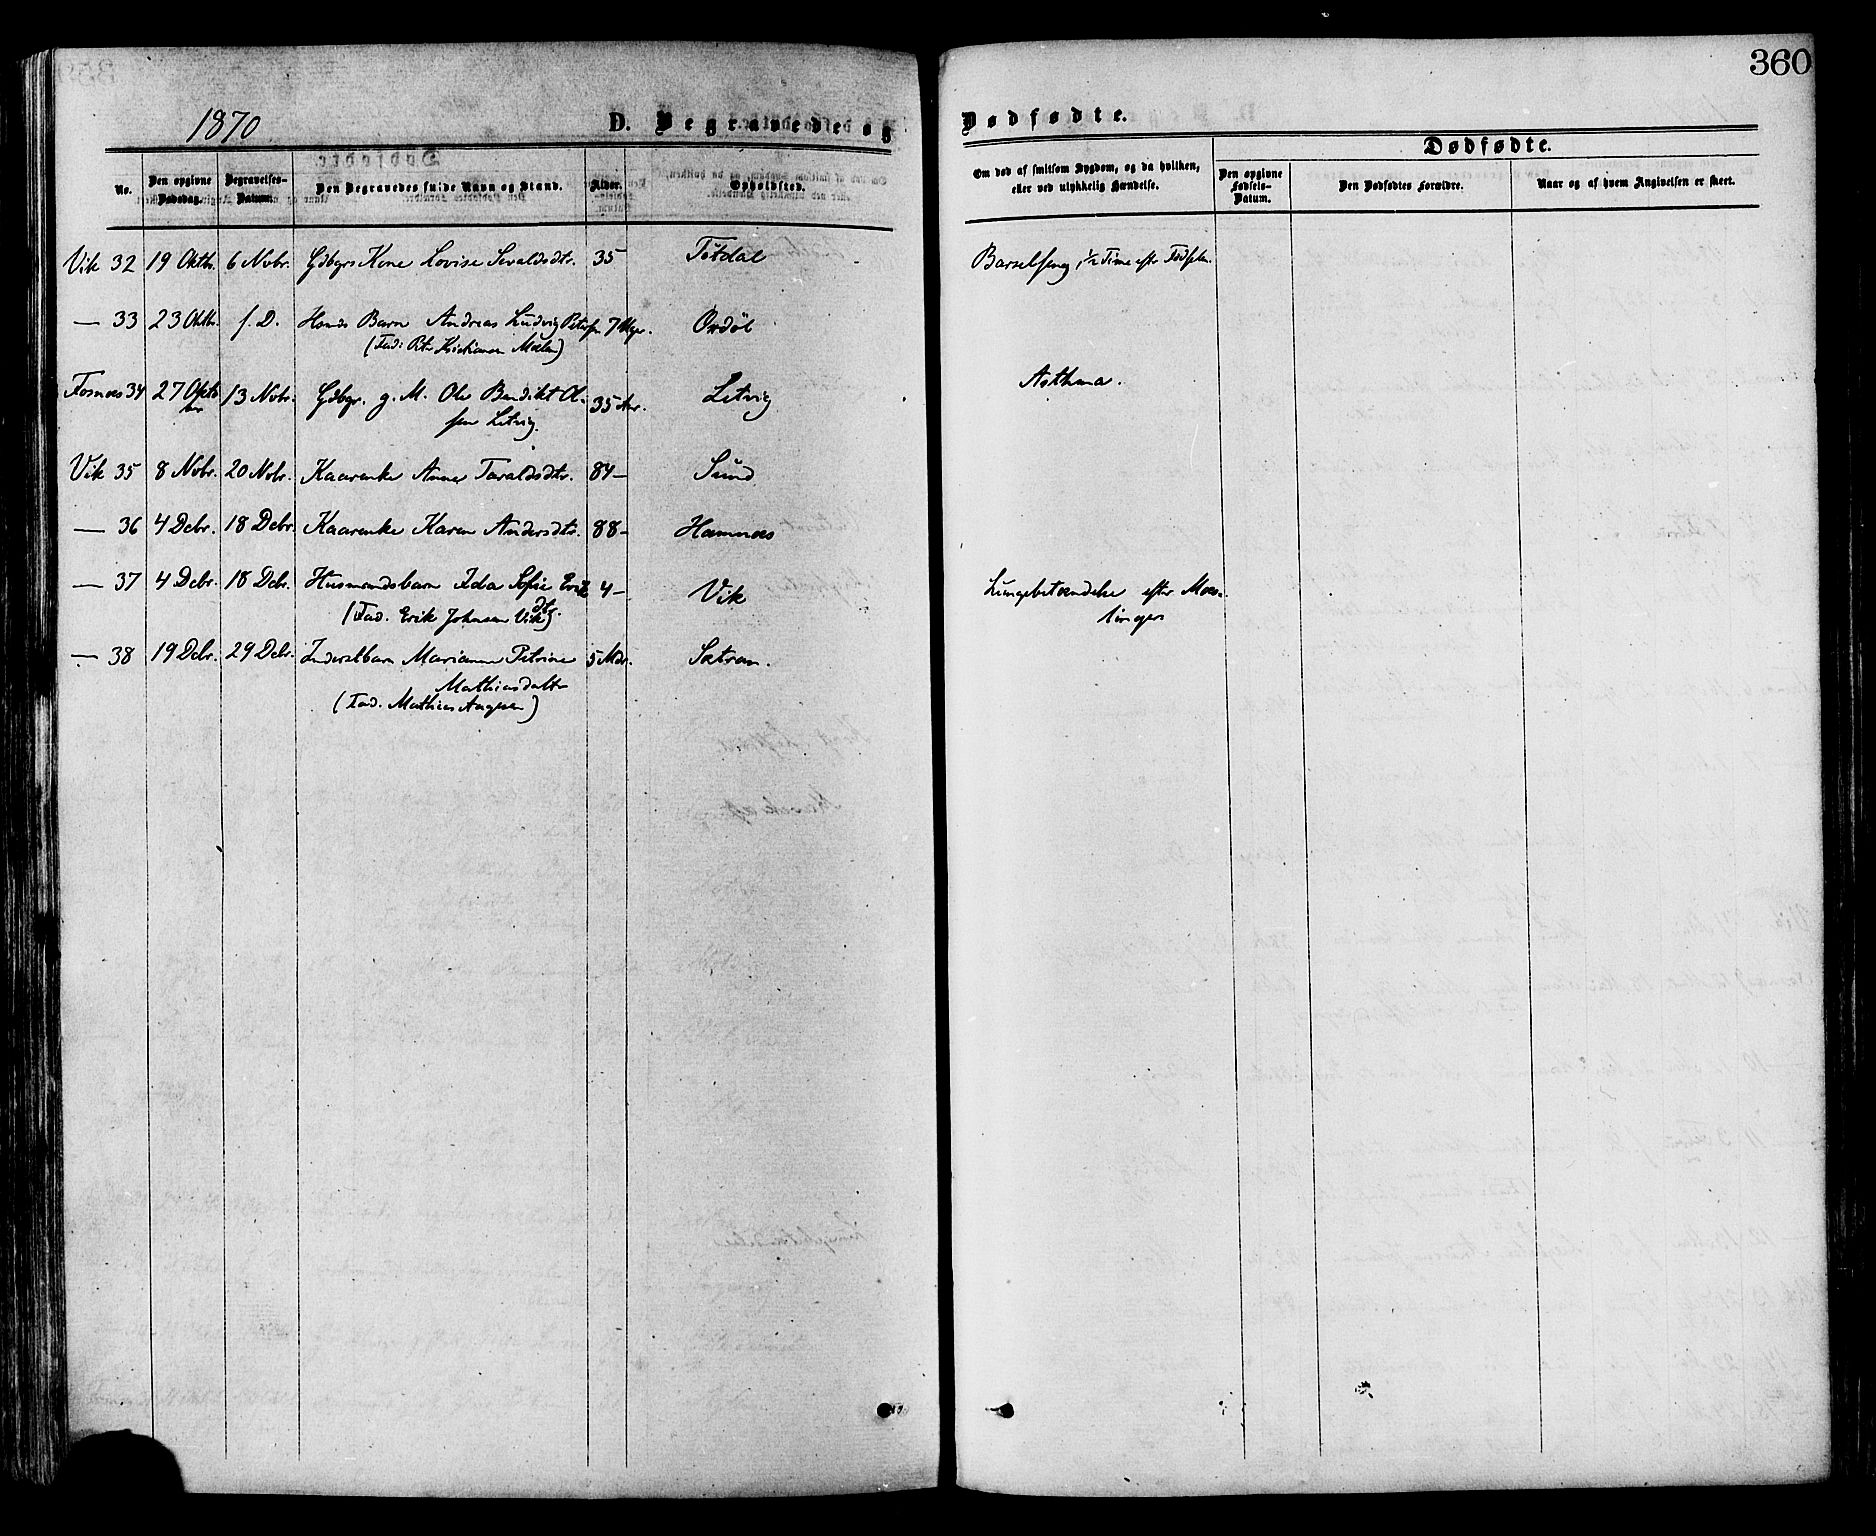 360
1870
D. Begravede og Dødfødte.
No.
Den opgivne Dødsdag.
Begravelses-Datum.
Den Begravedes fulde Navn og Stand.
Alder.
Opholdssted.
Om død af smitsom Sygdom, og da hvilken, eller ved ulykkelig Hændelse.
Dødfødte.
Den opgivne Fødsels-Datum.
Den Dødfødtes Forældre.
Naar og af hvem Angivelsen er skeet.
Vik 32 19 Oktbr. 6 Novbr. Gdbgrs Kone Lovise Sevaldsdtr. 35 Tøtdal Barselseng, 1/2 Time eftr Fødselen.
— 33 23 Oktbr. s. D. Hsmds Barn Andreas Ludvig Petersn 7 Uger. Ordøl
(Fad: Petr Kristiansen Moelan)
Fosnæs 34 27 Oktbr 13 Novbr. Gdbgr. g. M. Ole Benedikt Ol- 35 Aar. Letvig Asthma.
sen Letvig.
Vik 35 8 Novbr. 20 Novbr. Kaarenke Anne Taraldsdtr. 84— Sund
— 36 4 Debr. 18 Debr. Kaarenke Karen Andersdtr. 88— Hamnæs
— 37 4 Debr. 18 Debr. Husmandsbarn Ida Sofie Erik 4— Vik Lungebetændelse efter Mæs-
dtr. linger
(Fad. Erik Johnsen Vik).
— 38 19 Debr. 29 Debr. Inderstbarn Mariann Petrine 5 Mdr. Sætran.
Mathiasdattr
(Fad. Mathias Aagesen)